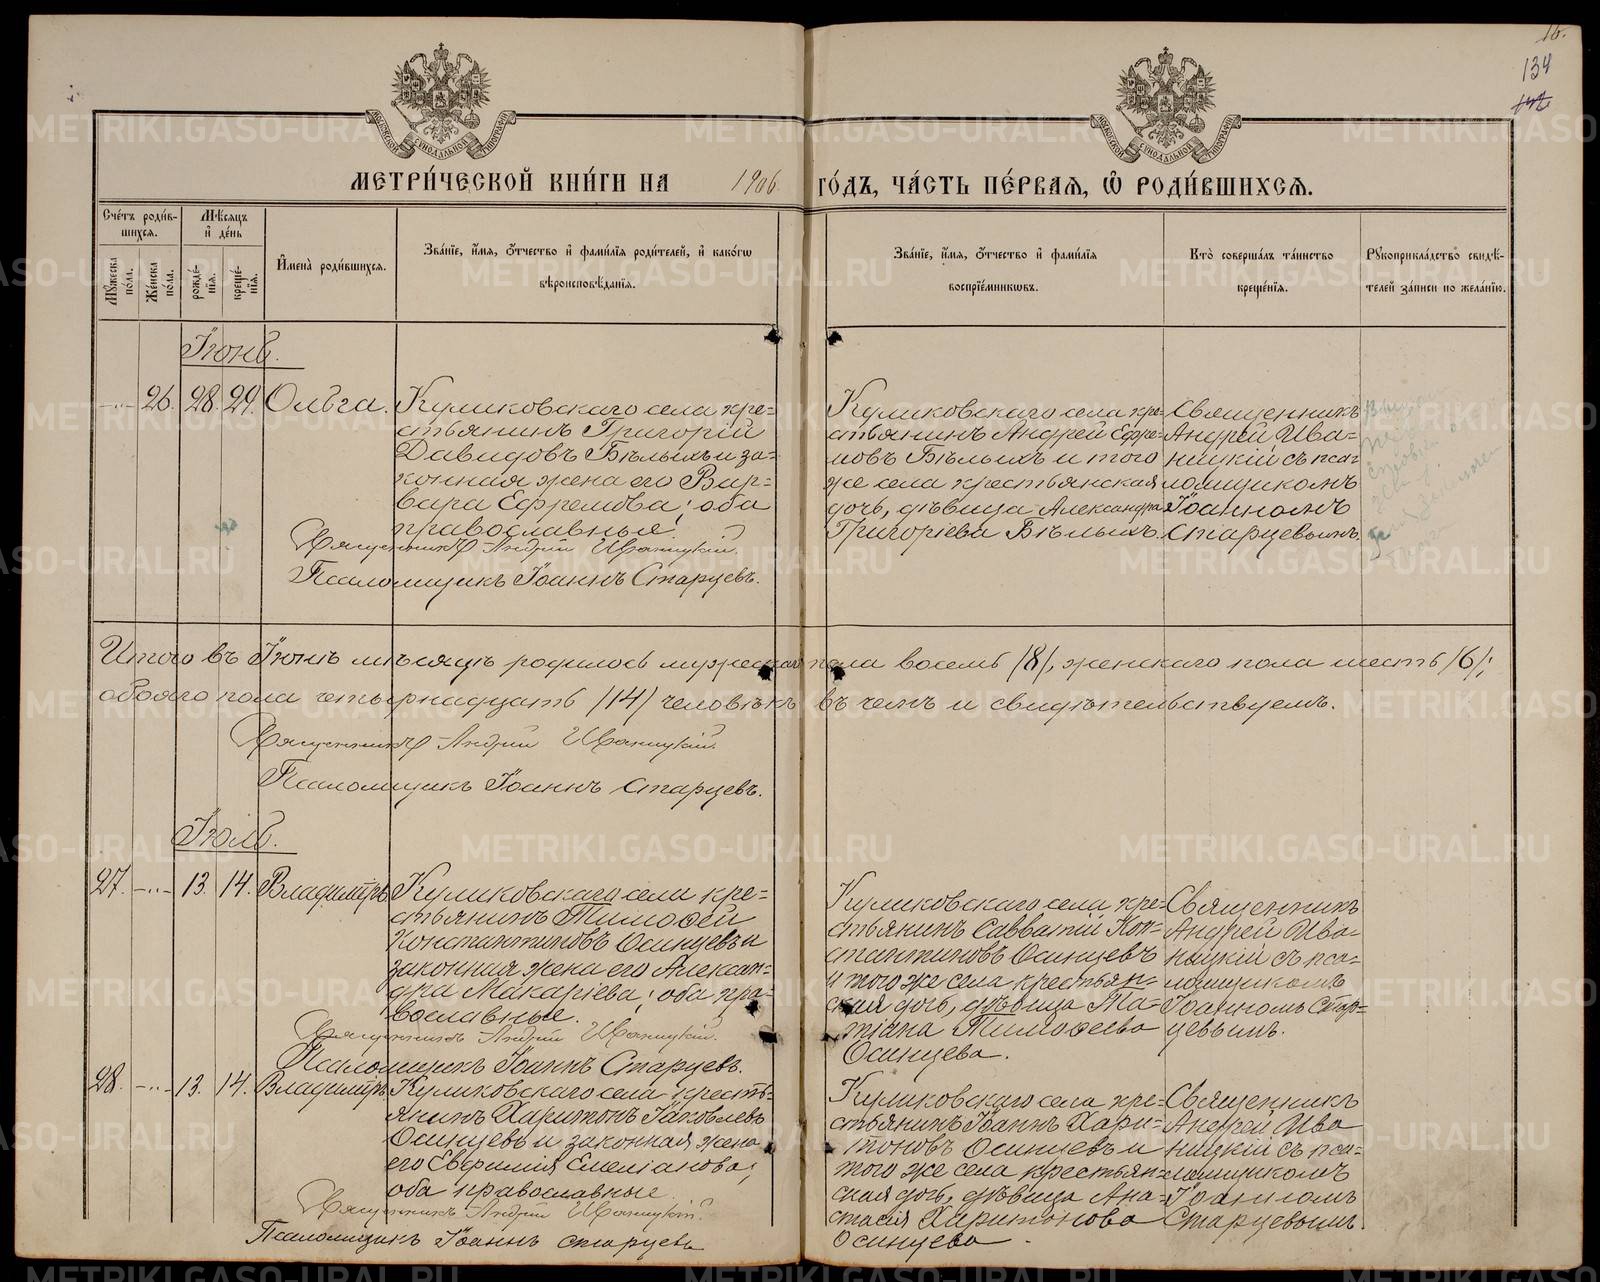 16.
134
МЕТРИ́ЧЕСКОЙ КНИ́ГИ НА 1906 ГО́ДЪ, ЧА́СТЬ ПЕ́РВАЯ, Ѡ РОДИ́ВШИХСЯ.
Сче́тъ роди́вшихся.
Мужеска по́ла.
Же́нска по́ла.
Мѣ́сяцъ и де́нь
рожде́нія.
креще́нія.
И҆мена̀ роди́вшихся.
Зва́ніе, и҆́мя, ѻ҆́тчество и҆ фами́лія роди́телей, и҆ како́гѡ
вѣроисповѣ́данія.
Зва́ніе, и҆́мя, ѻ҆́тчество и҆ фами́лія
воспріе́мниковъ.
Кто̀ соверша́лъ та́инство
креще́нія.
Рукоприкла́дство свидѣ́-
телей за́писи по жела́нію.
Іюнь.
26. 28. 29. Ольга.
Куликовскаго села кре=
стьянинъ Григорій
Давидовъ Бѣлыхъ и за=
конная жена его Вар=
вара Ефремова; оба
православные.
Священникъ Андрей Иваницкій.
Псаломщикъ Іоаннъ Старцевъ.
Куликовскаго села кре=
стьянинъ Андрей Ефре=
мовъ Бѣлыхъ и того
же села крестьянская
дочь, дѣвица Александра
Григоріева Бѣлыхъ.
Священникъ
Андрей Ива=
ницкій съ пса=
ломщикомъ
Іоанномъ
Старцевымъ.
Итого въ Іюнѣ мѣсяцѣ родилось мужескаго пола восемь /8/, женскаго пола шесть /6/;
обоего пола четырнадцать /14/ человѣкъ въ чемъ и свидѣтельствуемъ.
Священникъ Андрей Иваницкій.
Псаломщикъ Іоаннъ Старцевъ.
Іюль.
27. 13. 14. Владиміръ
Куликовскаго села кре=
стьянинъ Тимоѳей
Константиновъ Осинцевъ и
законная жена его Алексан=
дра Макаріева; оба пра=
вославные.
Священникъ Андрей Иваницкій.
Псаломщикъ Іоаннъ Старцевъ.
Куликовскаго села кре=
стьянинъ Савватій Кон=
стантиновъ Осинцевъ
и того же села крестьян=
ская дочь, дѣвица Та=
тіана Тимоѳеева
Осинцева.
Священникъ
Андрей Ива=
ницкій съ пса=
ломщикомъ
Іоанномъ Стар=
цевымъ.
28. 13. 14. Владиміръ
Куликовскаго села кресть=
янинъ Харитонъ Іаковлевъ
Осинцевъ и законная жена
его Евфимія Емеліанова;
оба православные.
Священникъ Андрей Иваницкій.
Псаломщикъ Іоаннъ Старцевъ
Куликовскаго села кре=
стьянинъ Іоаннъ Хари=
тоновъ Осинцевъ и
того же села крестьян=
ская дочь, дѣвица Ана=
стасія Харитонова
Осинцева.
Священникъ
Андрей Ива
ницкій съ пса=
ломщикомъ
Іоанномъ
Старцевымъ.
METRIKI.GASO-URAL.RU